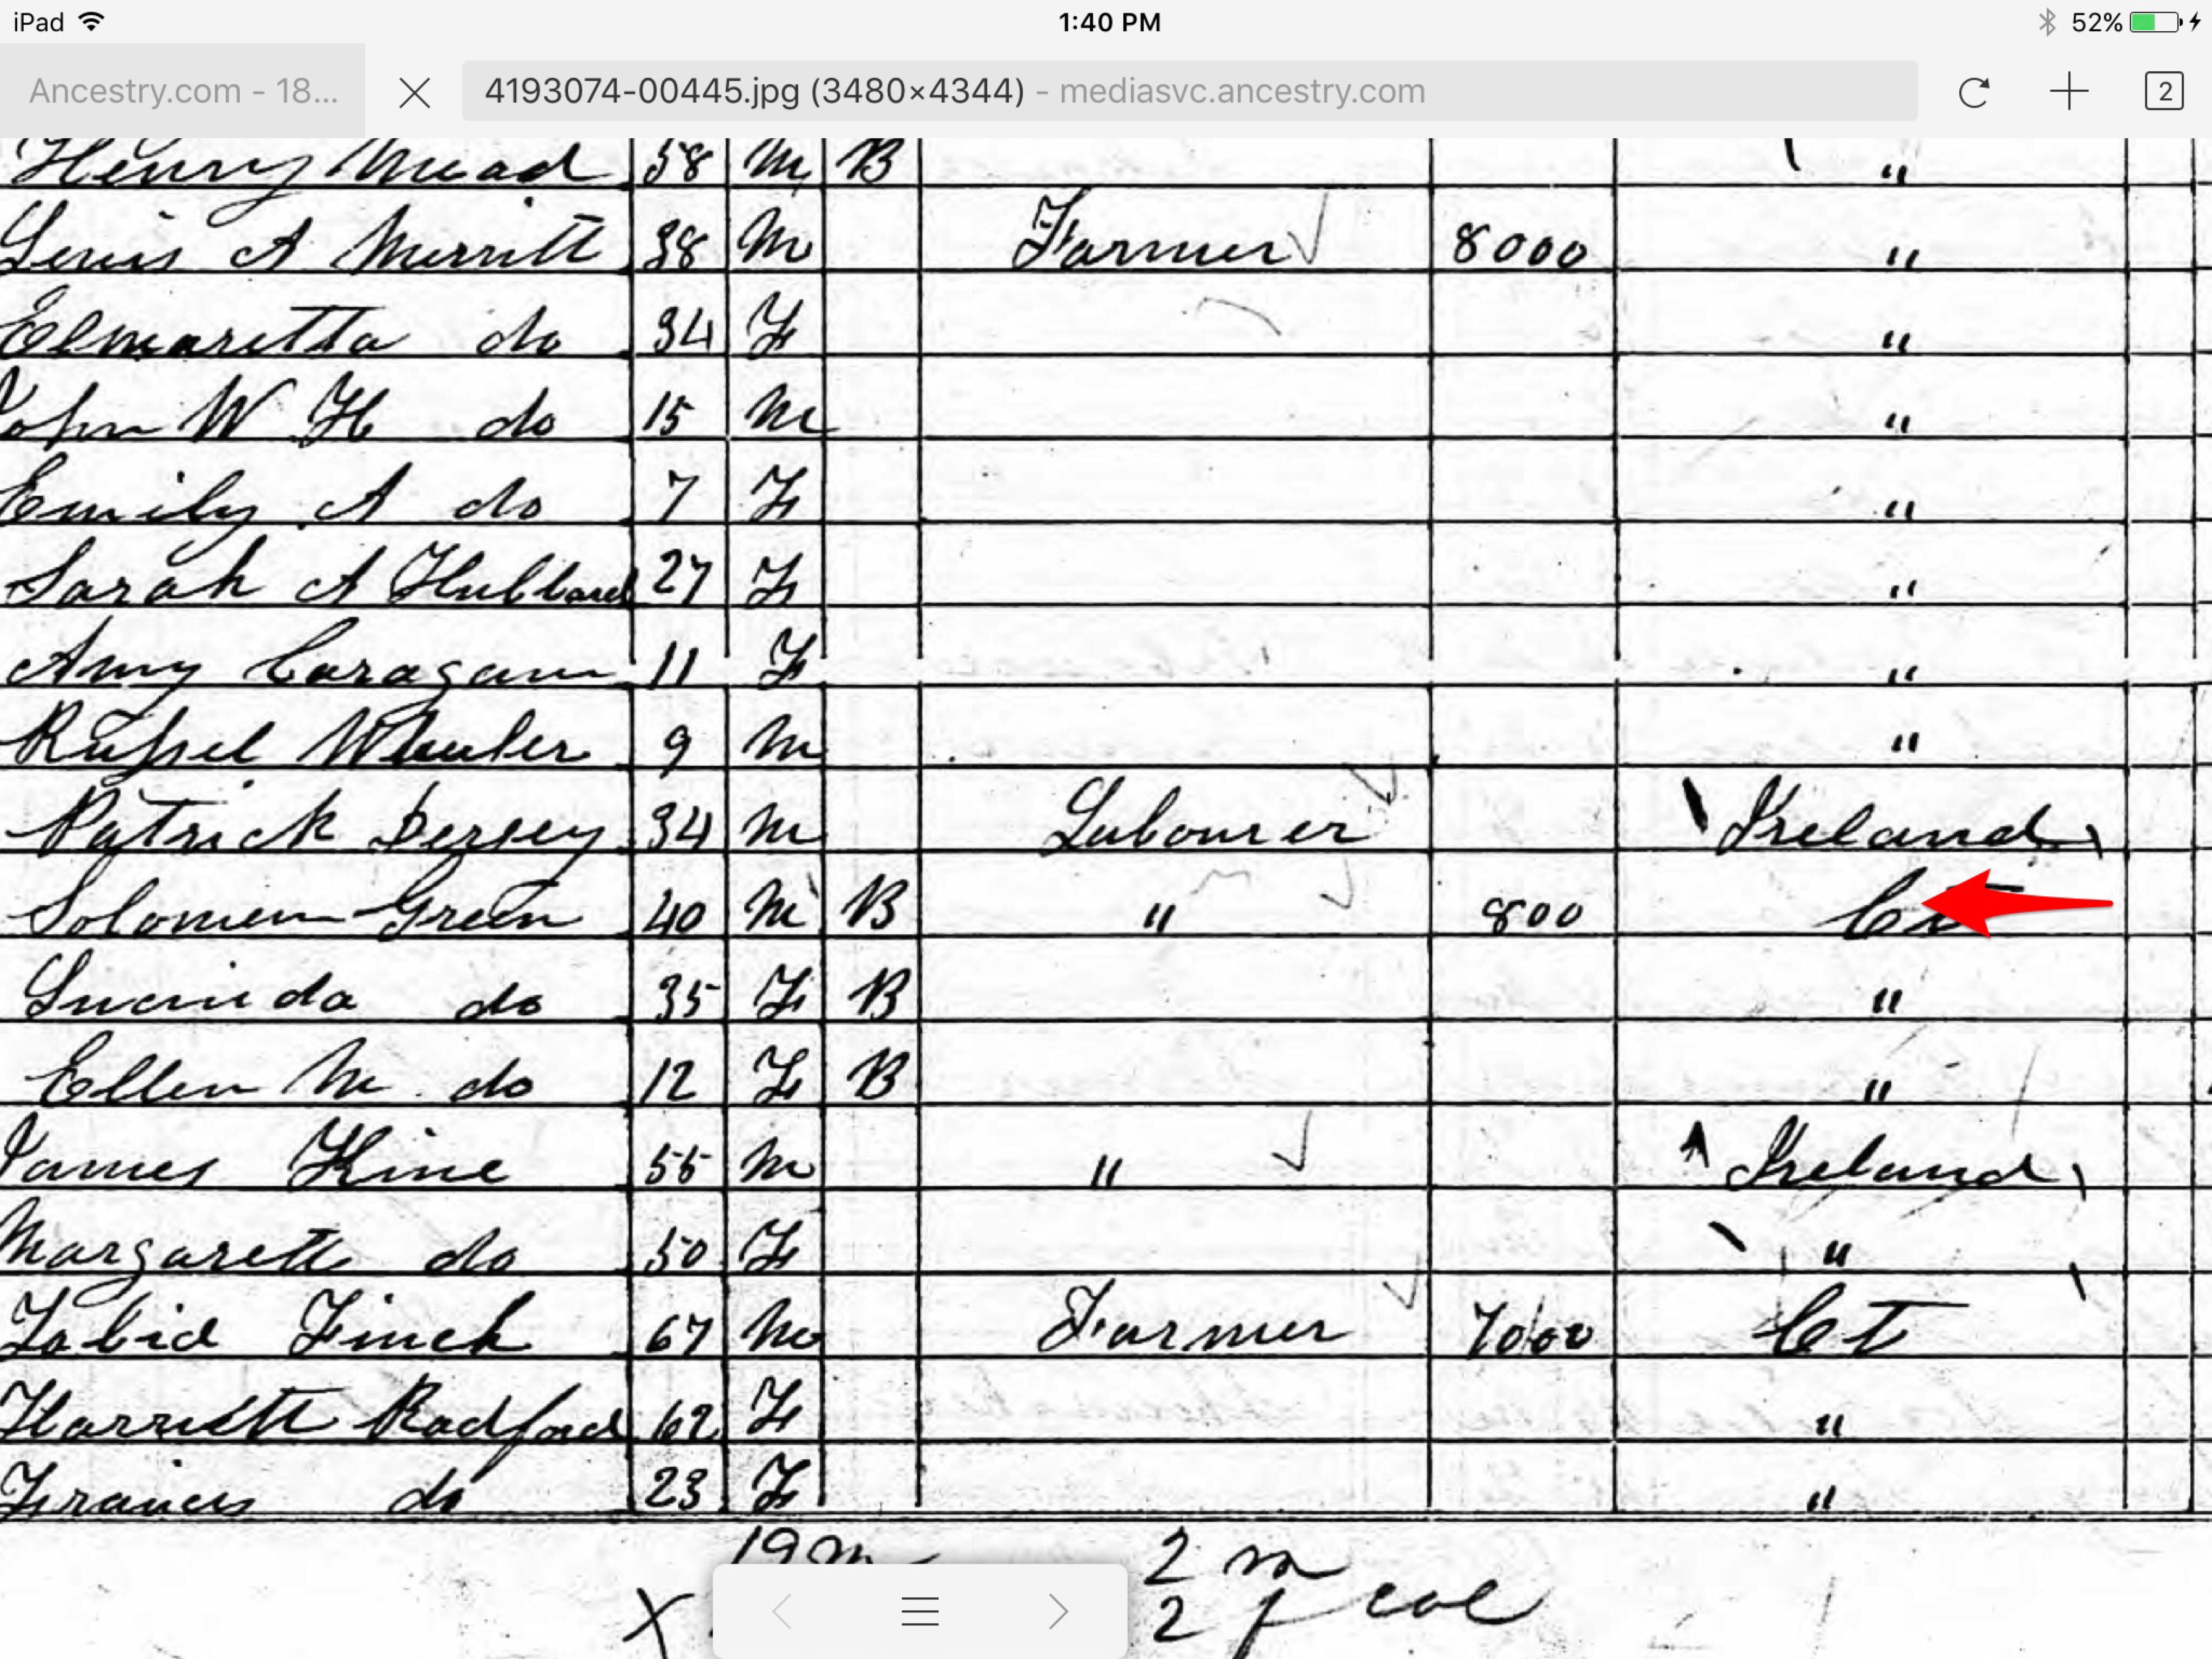 iPad 1:40 PM 52%
Ancestry.com - 18... 4193074-00445.jpg (3480×4344) - mediasvc.ancestry.com 2
Henry Mead 58 M B "
Lewis A Merritt 38 M Farmer 8000 "
Elmaretta do 34 F "
John W H do 15 M "
Emily A do 7 F "
Sarah A Hubbard 27 F "
Amy 11 F "
Russel Wheeler 9 M "
Patrick Dersey 34 M Labourer Ireland
Solomen Green 40 M B " 800 Ct
Lucinda do 35 F B "
Ellen M do 12 F B "
James Kine 55 M " Ireland
Margarett do 50 F "
Finch 67 M Farmer 7000 Ct
Harriett Radford 62 F "
Francis do 23 F "
19 m 2 m
X 2 f col